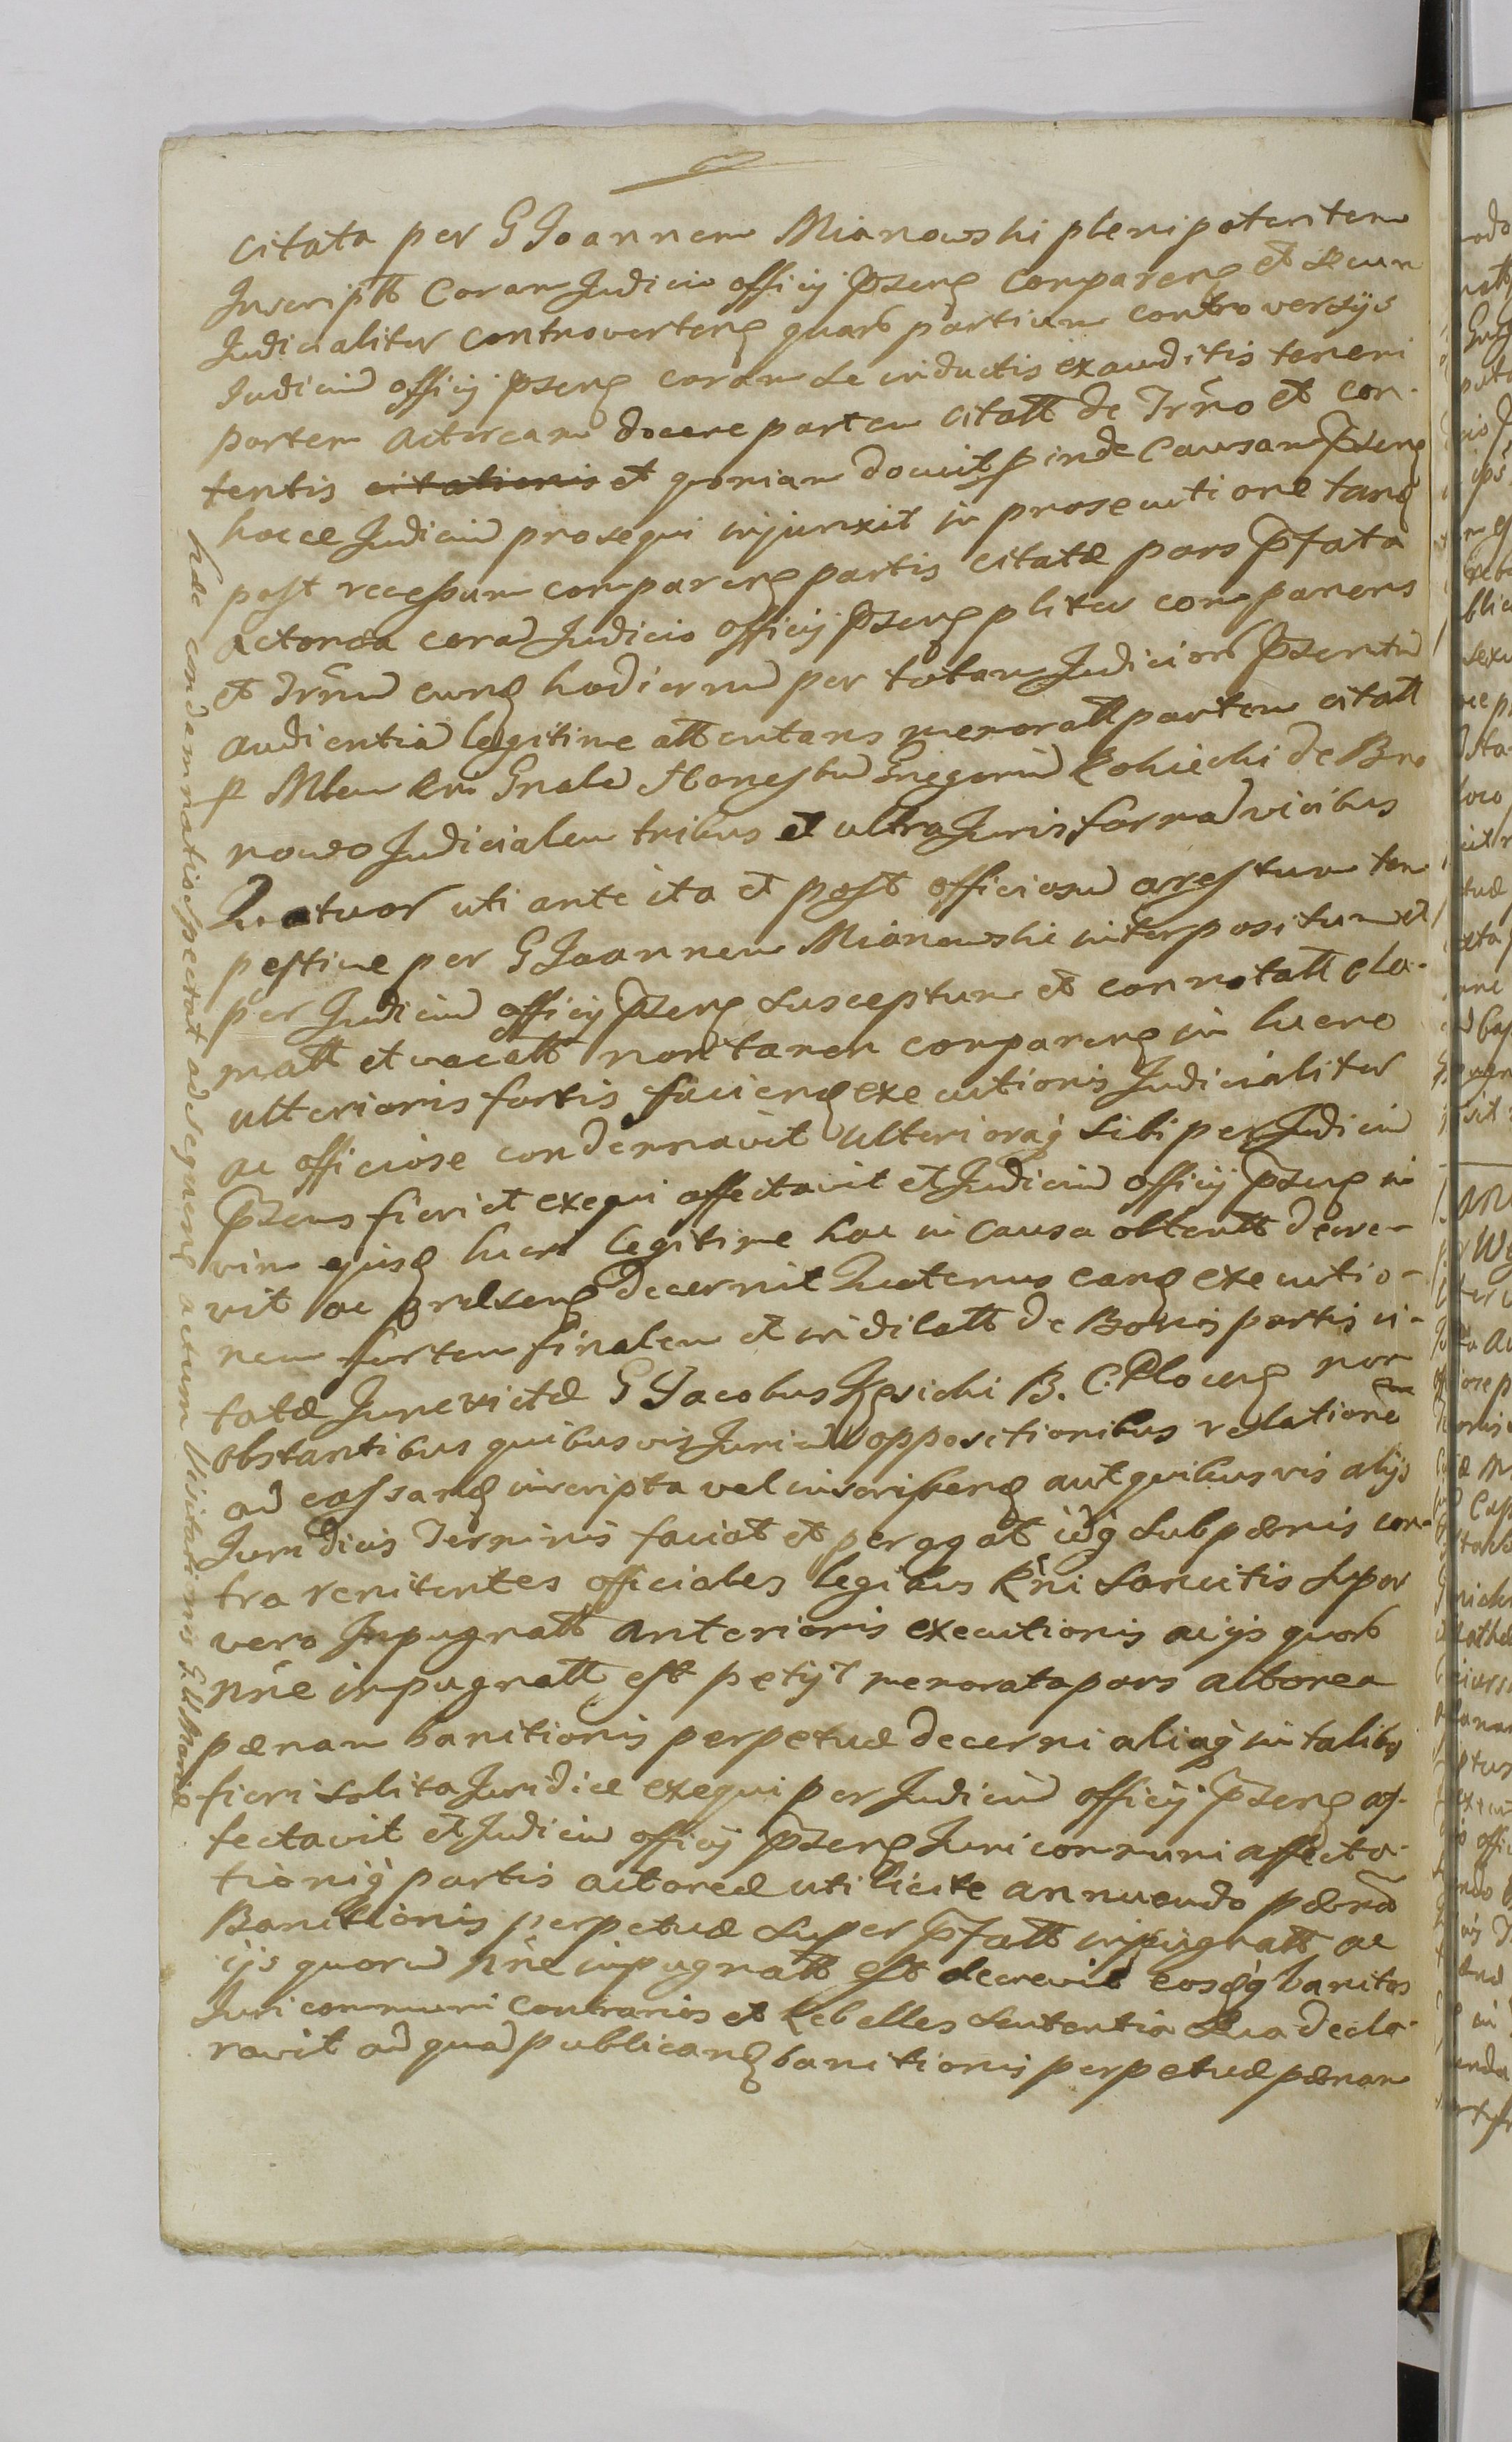 citata per G Joannem Mianowski plenipotentem
Inscriptt Coram Judicio officij pzens Comparens et secum
Judicialiter Controvertens quarb partium controversijs
Judiciu officij pzens coram se inductis exauditis teneri
partem Actoream docere partem citatt de Trno et con-
tentis citationis et quoniam docuit inde Causam pzens
hocce Judiciu prosequi injunxit in prosecutione tand
post recessum comparens partis citatæ pars pfata
Actorea cora Judicio officij pzens pliter comparens
et Trnu eund hodiernu per totam Judiciorb pzentiu
audientia legitime attentans memoratt partem citatt
p Mlem Rni Gnale Honestu Gregoriu Rokicki de Bro
nowo Judicialem tribus et ultra Juris forma vicibus
Quatuor uti ante ita et post officiosu arestum tem
pestive per G Joannem Mianowski interpositum et
per Judiciu officij pzens susceptum et connotatt cla-
matt et vocatt non tamen comparens in lucro
ulterioris fortis faciend executionis Judicialiter
ac officiose condemnavit ulterioraq sibi per Judiciu
pzens fieri et exequi affectavit et Judiciu officij pzens in
vim ejusd lucri legitime hac in Causa obtentt decre-
vit ac decernit Quatenus eand executio-
nem fortem finalem et indilatt de Bonis partis ci-
tatæ Jurevictæ G Jacobus B. C. Plocens non
obstantibus quibusvis Juriu oppositionibus relatione
ad cassand inscripta vel inscribend aut quibusvis alijs
Juridicis Terminis faciat et peragat idq sub pænis con-
tra renitentes officiales legibus Rni sancitis super
vero Inpugnatt anterioris executionis ac ijs quorb
nne inpugnatt est petijt memorata pars actorea
pænam banitionis perpetuæ decerni aliaq in talibus
fieri solita Juridice exequi per Judiciu officij pzens af-
fectavit et Judiciu officij pzens Juri communi affecta-
tioniq partis actoreæ uti licite annuendo pæna
Banitionis perpetuæ super pfatt inpugnatt ac
ijs quoru nne inpugnatt est decrevit eosq banitos
Juri communi Contrarios et Rebelles sententia sua decla-
ravit ad qua publicand banitionis perpetuæ pænam
hæc condemnatio spectat ad sequens actum Visitationis B. V. Mariæ